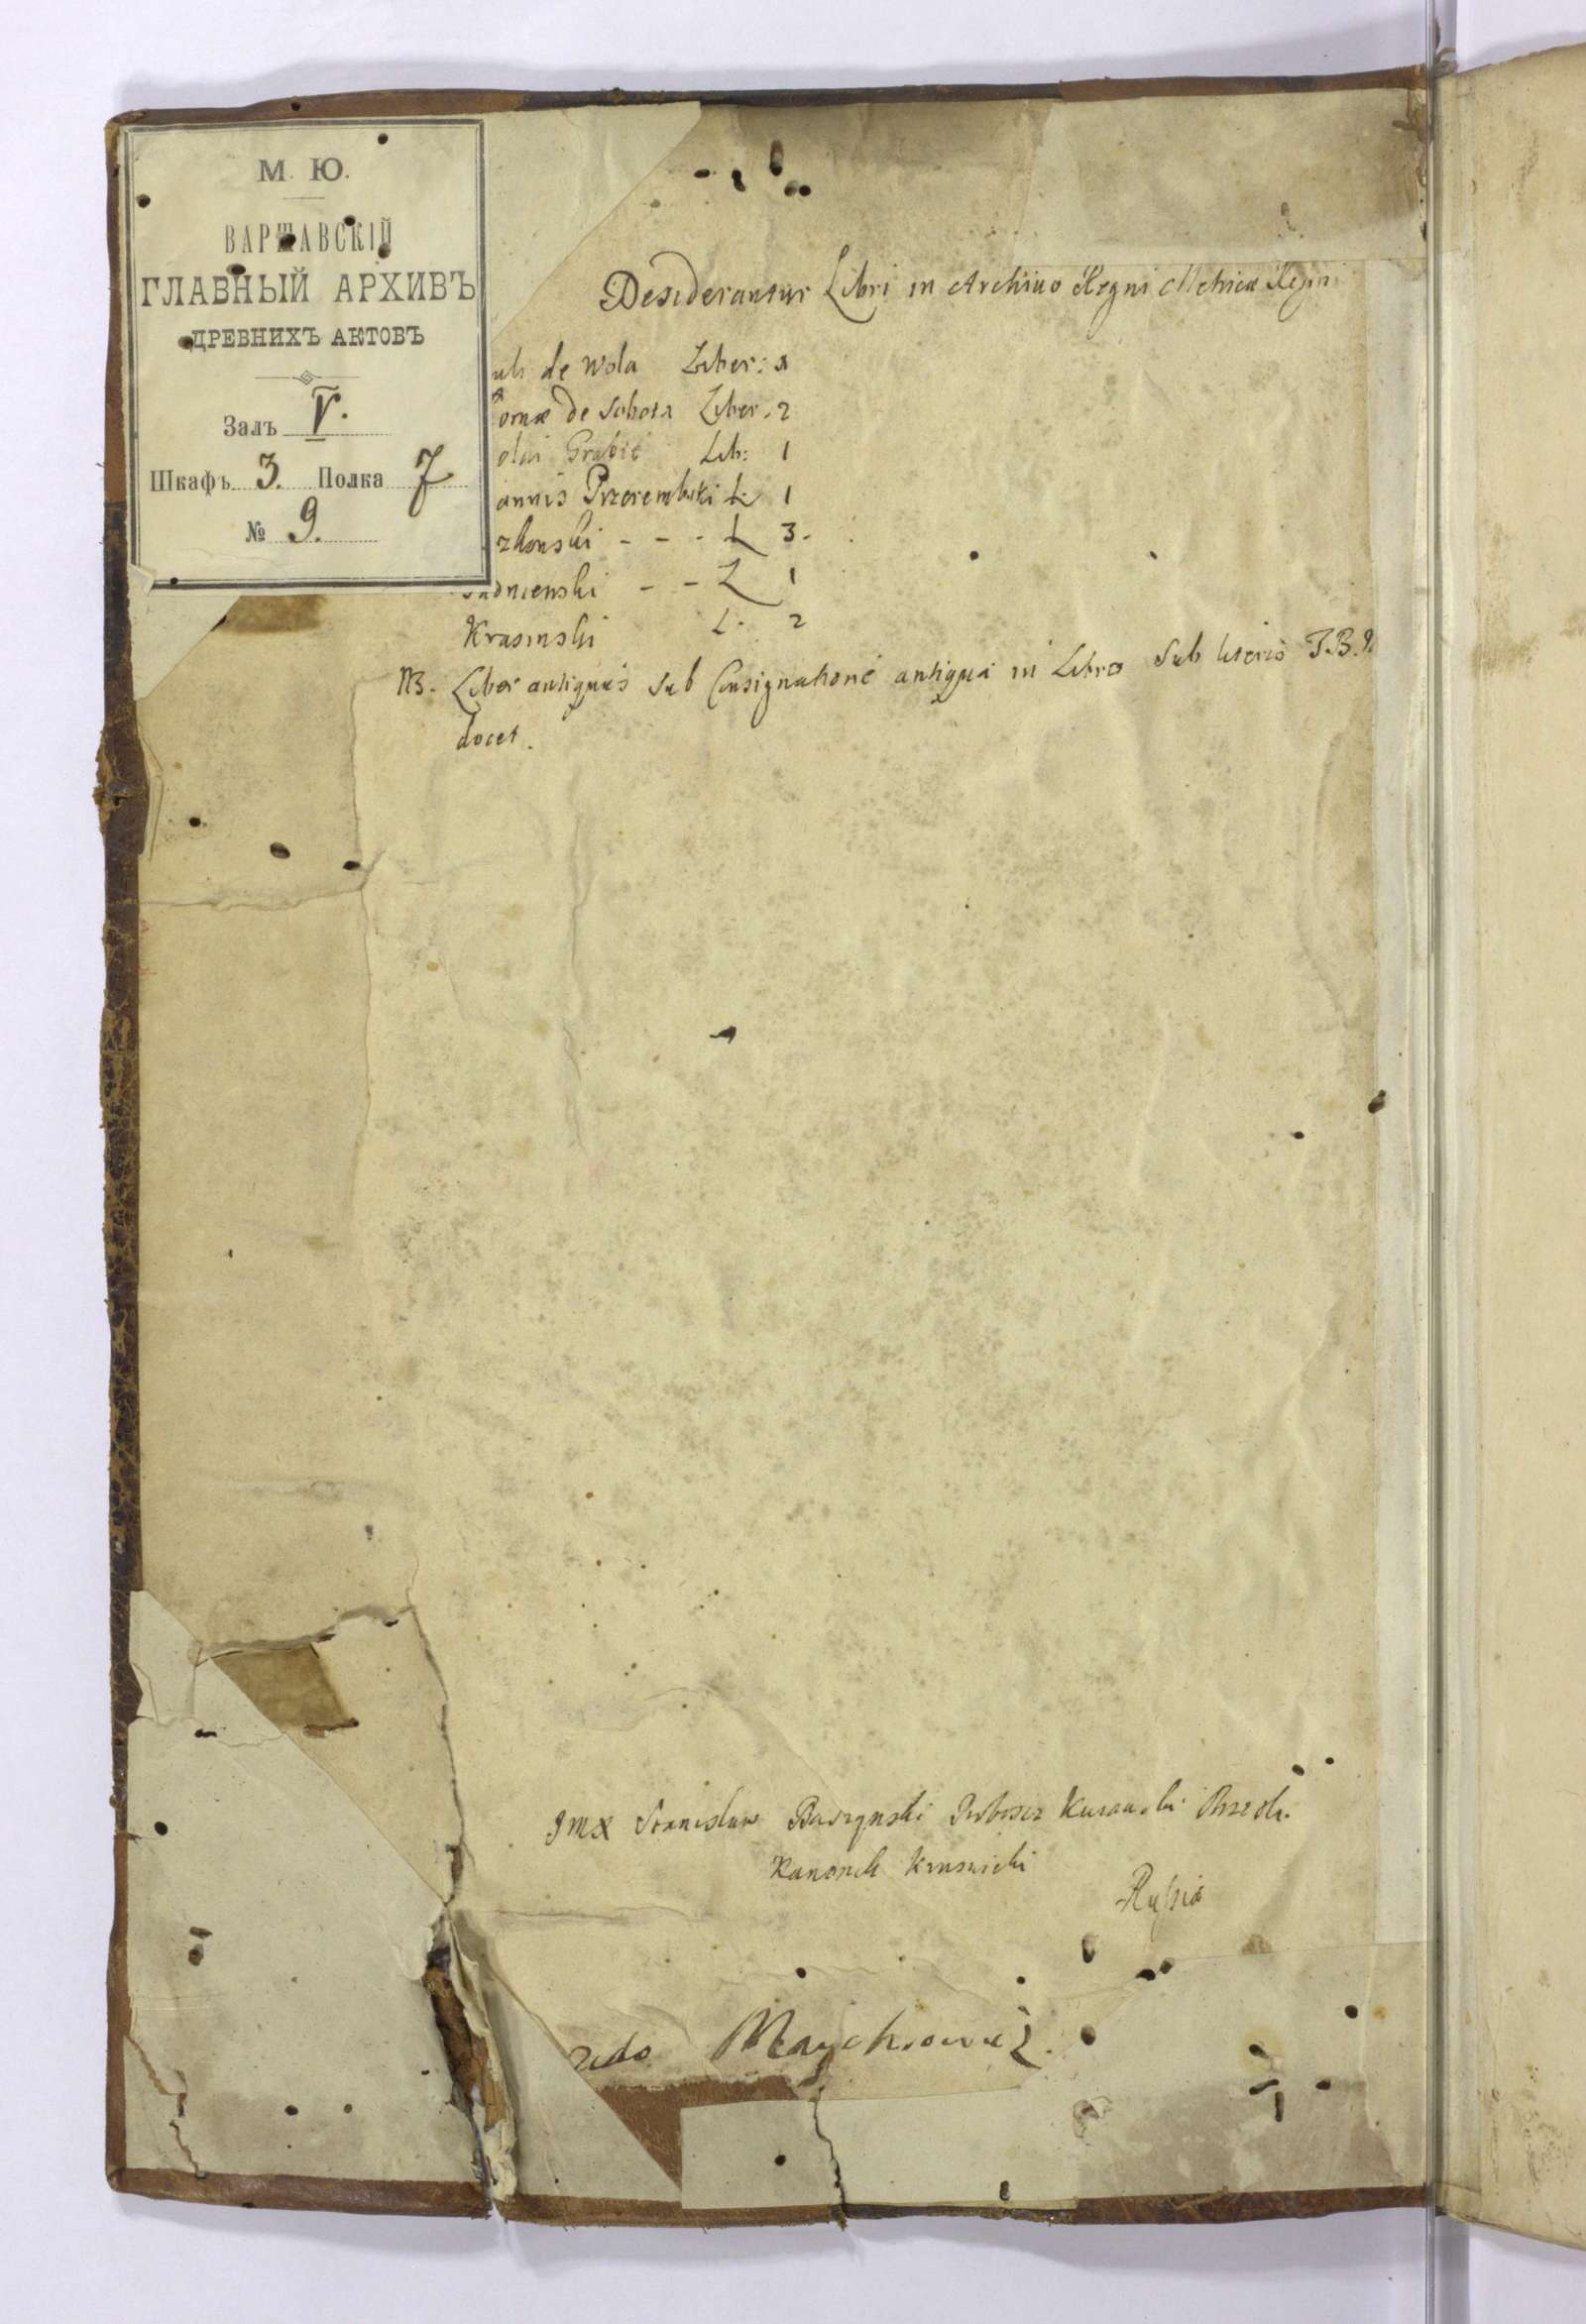 М. Ю.
ВАРШАВСКІЙ
ГЛАВНЫЙ АРХИВЪ
ДРЕВНИХЪ АКТОВЪ
Залъ V.
Шкафъ 3. Полка 7
№ 9.
Desiderantur Libri in Archivo Regni Metricæ Regni
de Wola Liber: 1
ornæ de Sobota Liber. 2
olai Grabie Lib: 1
annis Przerembski L: 1
zkonski - - - L 3.
- - L 1
Krasinski L. 2
NB. Liber antiquus sub Consignatione antiqua in Libro sub literis T.B.
docet.
JMX Stanislaw Baszynski
Kanonik
Russia